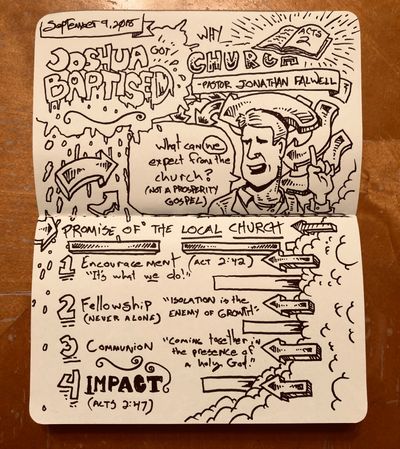 September 9, 2018
JOSHUA GOT
BAPTISED
WHY
CHURCH
ACTS
2
-PASTOR JONATHAN FALWELL
What can we
expect from the
church?
(NOT A PROSPERITY
GOSPEL)
PROMISE OF THE LOCAL CHURCH
1 Encouragement (ACT 2:42)
"It's what we do!"
2 Fellowship
(NEVER ALONE)
"ISOLATION is the
ENEMY OF GROWTH"
3 Communion
"Coming together in
the presence of
a holy God."
4 IMPACT
(ACTS 2:47)